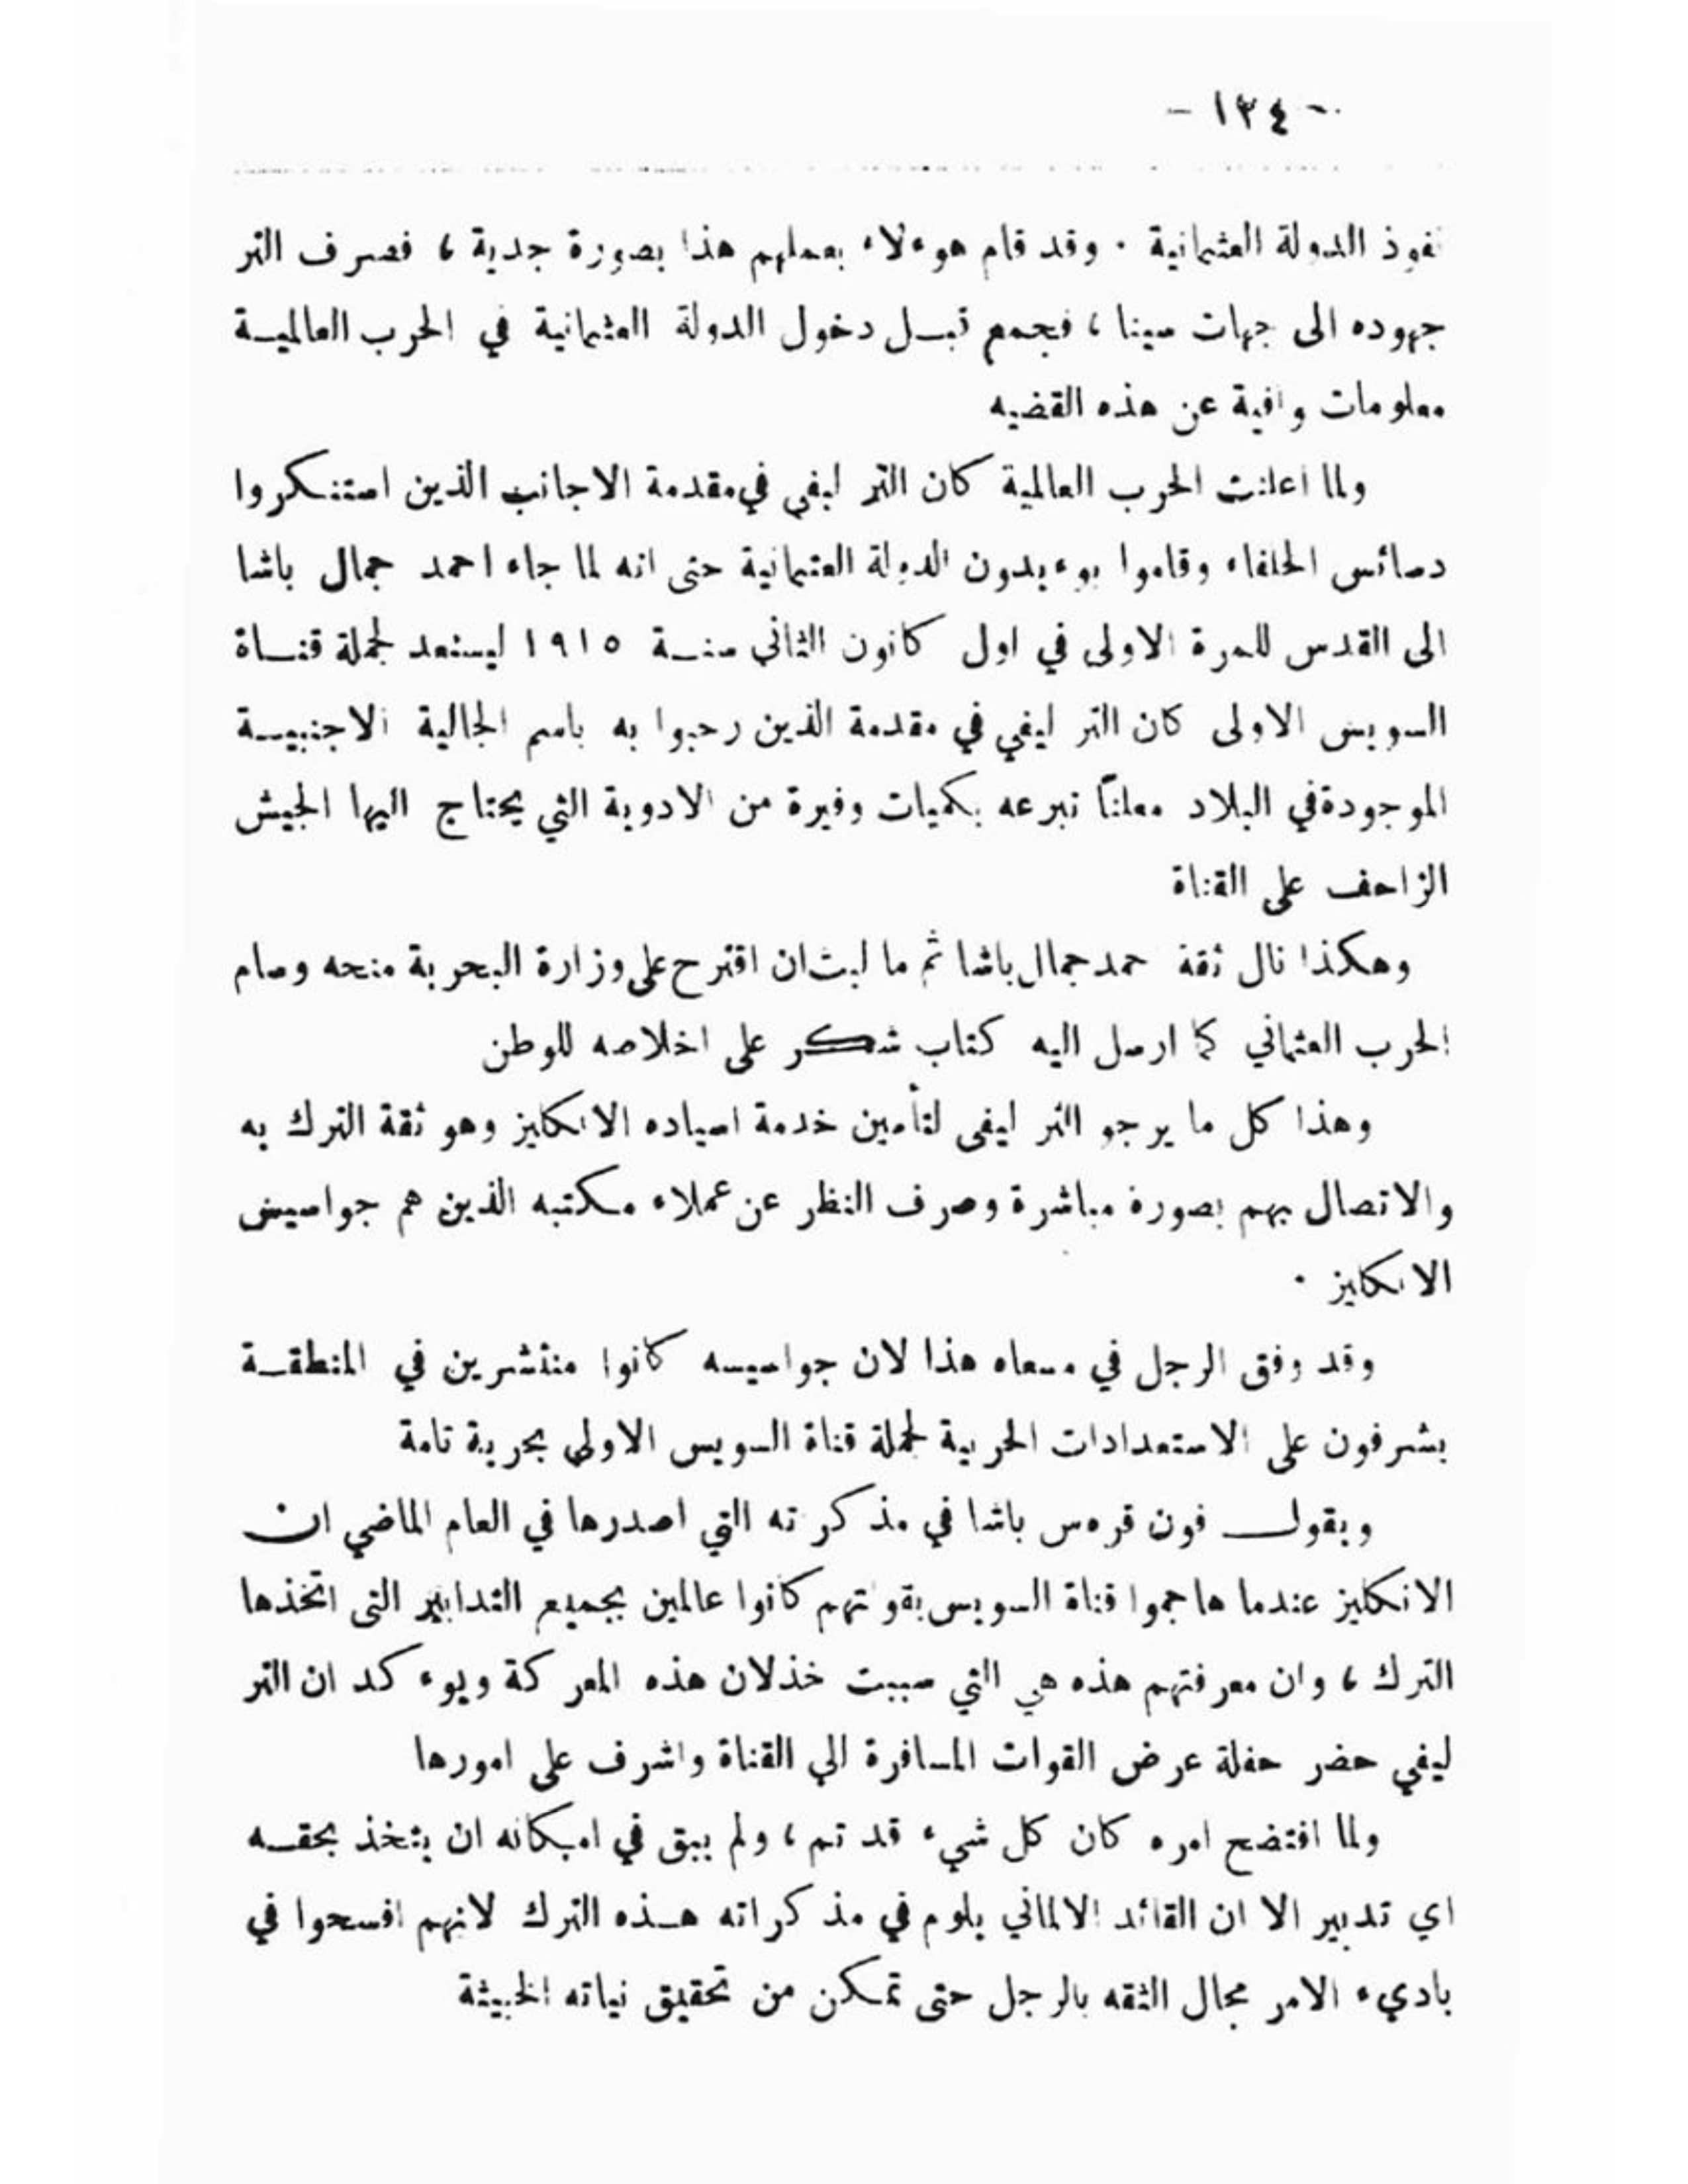 - ١٣٤ -
نفوذ الدولة العثمانية . وقد قام هوءلاء بعملهم هذا بصورة جدية ، فصرف التر
جهوده الى جهات سينا ، فجمع قبــل دخول الدولة العثمانية في الحرب العالميـة
معلومات وافية عن هذه القضيه
ولما اعلنت الحرب العالمية كان التر ليفي في مقدمة الاجانب الذين استنكروا
دسائس الحلفاء وقاموا يوءيدون الدولة العثمانية حتى انه لما جاء احمد جمال باشا
الى القدس للمرة الاولى في اول كانون الثاني سنــة ١٩١٥ ليستعد لحملة قنــاة
السويس الاولى كان التر ليفي في مقدمة الذين رحبوا به باسم الجالية الاجنبيــة
الموجودة في البلاد معلناً تبرعه بكميات وفيرة من الادوية التي يحتاج اليها الجيش
الزاحف على القناة
وهكذا نال ثقة حمد جمال باشا ثم ما لبث ان اقترح على وزارة البحرية منحه وسام
الحرب العثماني كما ارسل اليه كتاب شكر على اخلاصه للوطن
وهذا كل ما يرجو التر ليفي لتأمين خدمة اسياده الانكليز وهو ثقة الترك به
والاتصال بهم بصورة مباشرة وصرف النظر عن عملاء مكتبه الذين هم جواسيس
الانكليز .
وقد وفق الرجل في مسعاه هذا لان جواسيسه كانوا منتشرين في المنطقــة
يشرفون على الاستعدادات الحربية لحملة قناة السويس الاولى بحرية تامة
ويقول فون قرهس باشا في مذكرته التي اصدرها في العام الماضي ان
الانكليز عندما هاجموا قناة السويس بقواتهم كانوا عالمين بجميع التدابير التى اتخذها
الترك ، وان معرفتهم هذه هي التي سببت خذلان هذه المعركة ويوءكد ان التر
ليفي حضر حفلة عرض القوات المسافرة الي القناة واشرف على امورها
ولما افتضح امره كان كل شيء قد تم ، ولم يبق في امكانه ان يتخذ بحقــه
اي تدبير الا ان القائد الالماني يلوم في مذكراته هــذه الترك لانهم افسحوا في
باديء الامر مجال الثقه بالرجل حتى تمكن من تحقيق نياته الخبيثة